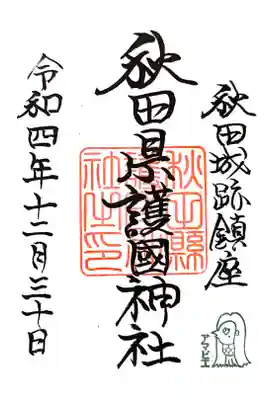 秋田城跡鎮座
秋田県護國神社
令和四年十二月三十日
秋田縣護國神社之印
アマビエ